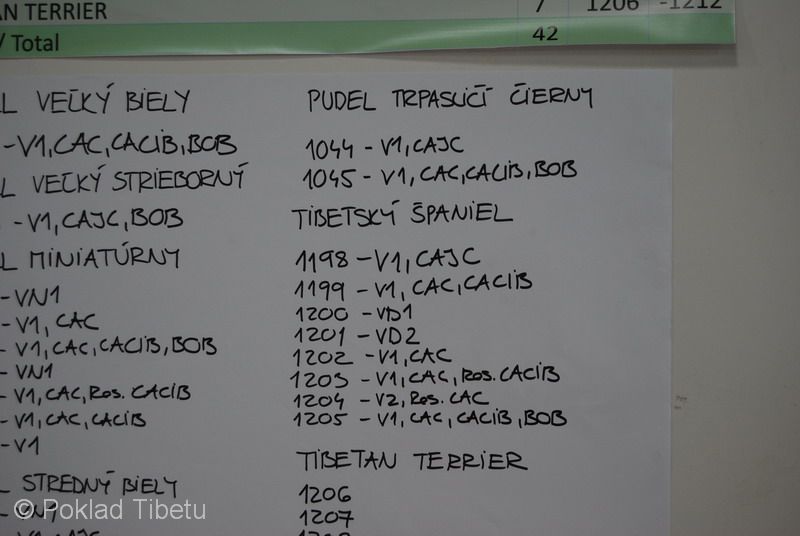 AN TERRIER 7 1206 -1212
/ Total 42
L VEĽKÝ BIELY
-V1,CAC,CACIB,BOB
L VEĽKÝ STRIEBORNÝ
-V1,CAJC,BOB
L MINIATÚRNY
-VN1
-V1,CAC
-V1,CAC,CACIB,BOB
-VN1
-V1,CAC,Res.CACIB
-V1,CAC,CACIB
-V1
L STREDNÝ BIELY
-VN1
PUDEL TRPASLIČÍ ČIERNY
1044 -V1,CAJC
1045 -V1,CAC,CACIB,BOB
TIBETSKÝ ŠPANIEL
1198 -V1,CAJC
1199 -V1,CAC,CACIB
1200 -VD1
1201 -VD2
1202 -V1,CAC
1203 -V1,CAC,Res.CACIB
1204 -V2,Res.CAC
1205 -V1,CAC,CACIB,BOB
TIBETAN TERRIER
1206
1207
© Poklad Tibetu